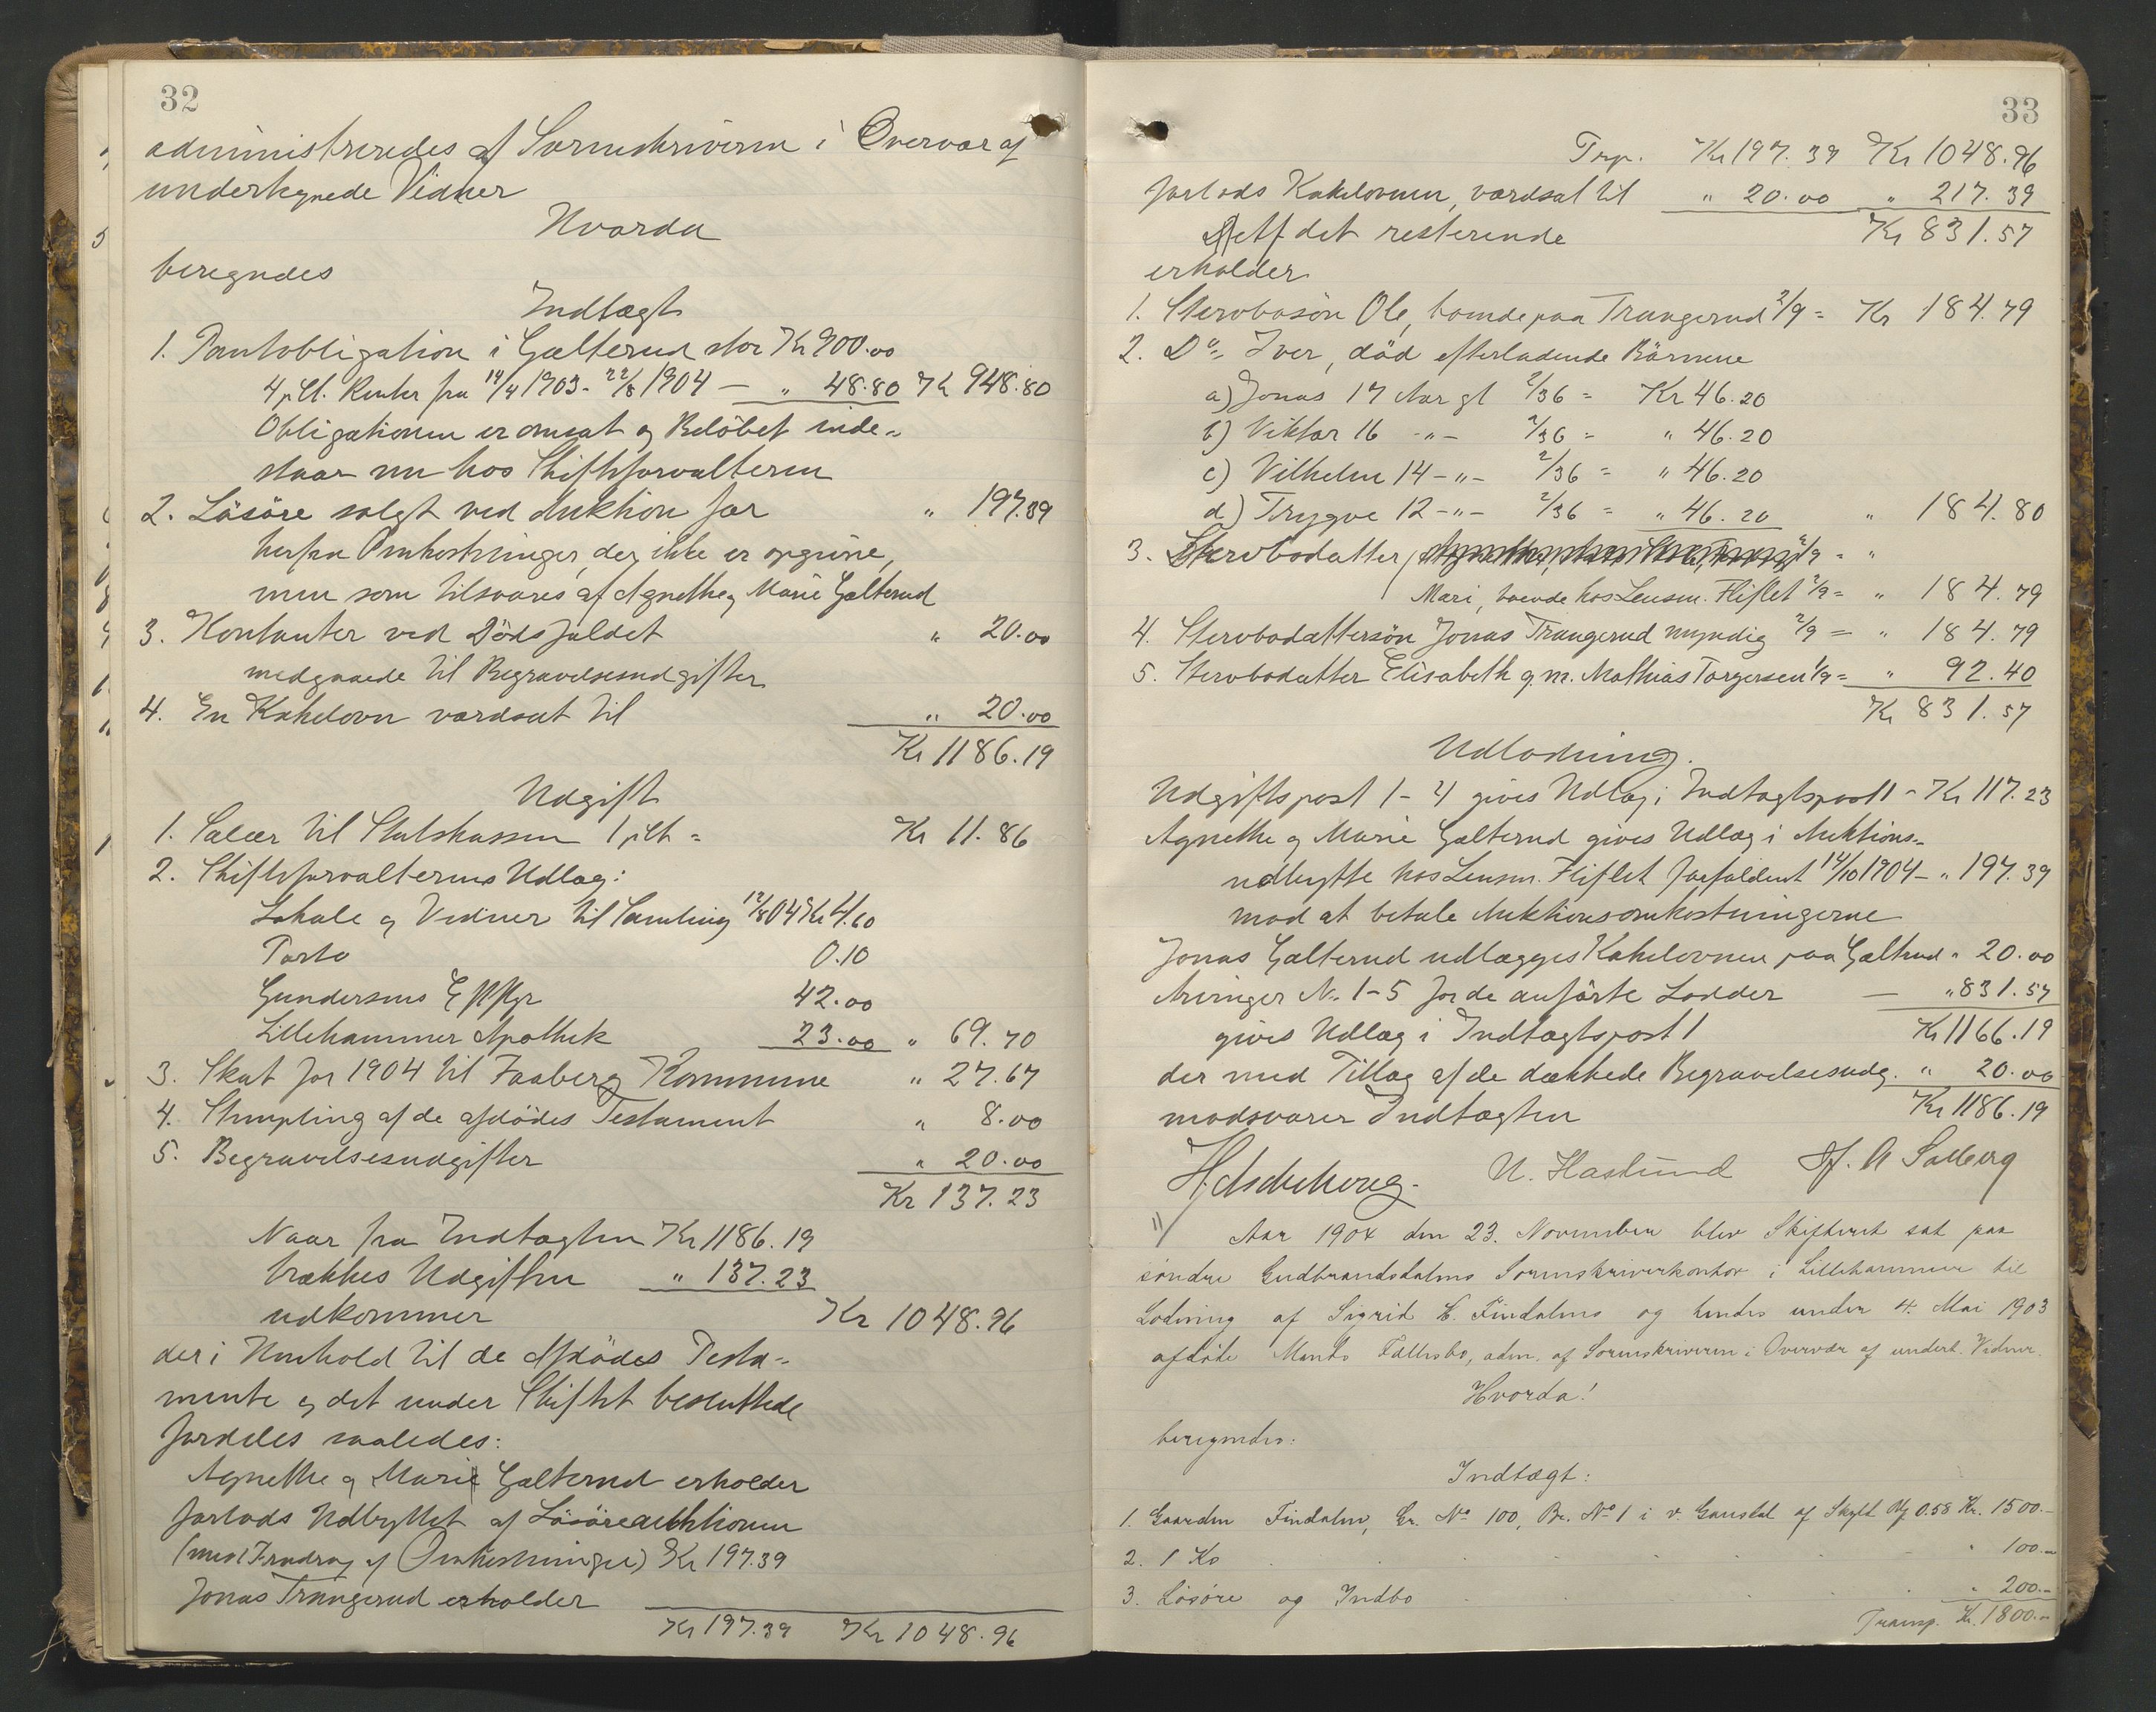 32
administreredes af Sorenskriveren i Overvær af
undertegnede Vidner
Hvorda
beregnedes
Indtægt
1. Pantobligation i Gælterud stor Kr 900.00
4 pCt. Renter fra 14/4 1903 - 22/8 1904 — " 48.80 Kr 948.80
Obligationen er omsat og Beløbet inde-
staar nu hos Skifteforvalteren
2. Løsøre solgt ved Auktion for " 197.39
herfra Omkostninger, der ikke er opgivne,
men som tilsvares af Agnethe og Marie Gælterud
3. Kontanter ved Dødsfaldet " 20.00
medgaaede til Begravelsesudgifter
4. En Kakelovn værdsat til " 20.00
Kr 1186.19
Udgift
1. Salær til Statskassen 1 pCt = Kr 11.86
2. Skifteforvalterens Udlæg:
Lokale og Vidner til Samling 12/8 04 Kr 4.60
Porto 0.10
Gundersens 42.00
Lillehammer Apothek 23.00 " 69.70
3. Skat for 1904 til Faaberg Kommune " 27.67
4. Stempling af de afdødes Testament " 8.00
5. Begravelsesudgifter " 20.00
Kr 137.23
Naar fra Indtægten Kr 1186.19
trækkes Udgiften " 137.23
udkommer Kr 1048.96
der i Henhold til de Afdødes Testa-
mente og det under Skiftet besluttede
fordeles saaledes:
Agnethe og Marie Gælterud erholder
forlods Udbyttet af Løsøreauktionen
(med Fradrag af Omkostninger) Kr 197.39
Jonas Trangerud erholder
Kr 197.39 Kr 1048.96
33
Trp. Kr 197.39 Kr 1048.96
forlods Kakelovnen, værdsat til " 20.00 " 217.39
Af det resterende Kr 831.57
erholder
1. Stervbosøn Ole, boende paa Trangerud 2/9 = Kr 184.79
2. Do Iver, død efterladende Børnene
a) Jonas 17 Aar gl 2/36 = Kr 46.20
b) Viktor 16 -"- 2/36 = " 46.20
c) Vilhelm 14 -"- 2/36 = " 46.20
d) Trygve 12 -"- 2/36 = " 46.20 " 184.80
3. Stervbodatter 2/9 = "
Mari, boende hos Lensm. Fliflet 2/9 = " 184.79
4. Stervbodattersøn Jonas Trangerud myndig 2/9 = " 184.79
5. Stervbodatter Elisabeth g. m. Mathias Torgersen 1/9 = " 92.40
Kr 831.57
Udlodning.
Udgiftspost 1-4 gives Udlæg i Indtægtspost 1 - Kr 117.23
Agnethe og Marie Gælterud gives Udlæg i Auktions-
udbytte hos Lensm. Fliflet forfaldent 14/10 1904 - " 197.39
mod at betale Auktionsomkostningerne
Jonas Gælterud udlægges Kakelovnen paa Gælterud " 20.00
Arvinger No 1-5 for de anførte Lodder — " 831.57
gives Udlæg i Indtægtspost 1 Kr 1166.19
der med Tillæg af de dækkede Begravelsesudg. " 20.00
modsvarer Indtægten Kr 1186.19
U. Haslund A. Solberg
Aar 1904 den 23. November blev Skifteret sat paa
søndre Gudbrandsdalens Sorenskriverkontor i Lillehammer til
Lodning af Sigrid E. Findalens og hendes under 4. Mai 1903
afdøde Mands Fællesbo, adm. af Sorenskriveren i Overvær af undert. Vidner.
Hvorda!
beregnedes:
Indtægt:
1. Gaarden Findalen, Gr. No 100, Br. No 1 i v. Gausdal af Skyld Mk 0.58 Kr. 1500.-
2. 1 Ko " 100.-
3. Løsøre og Indbo " 200.-
Transp. Kr. 1800.-